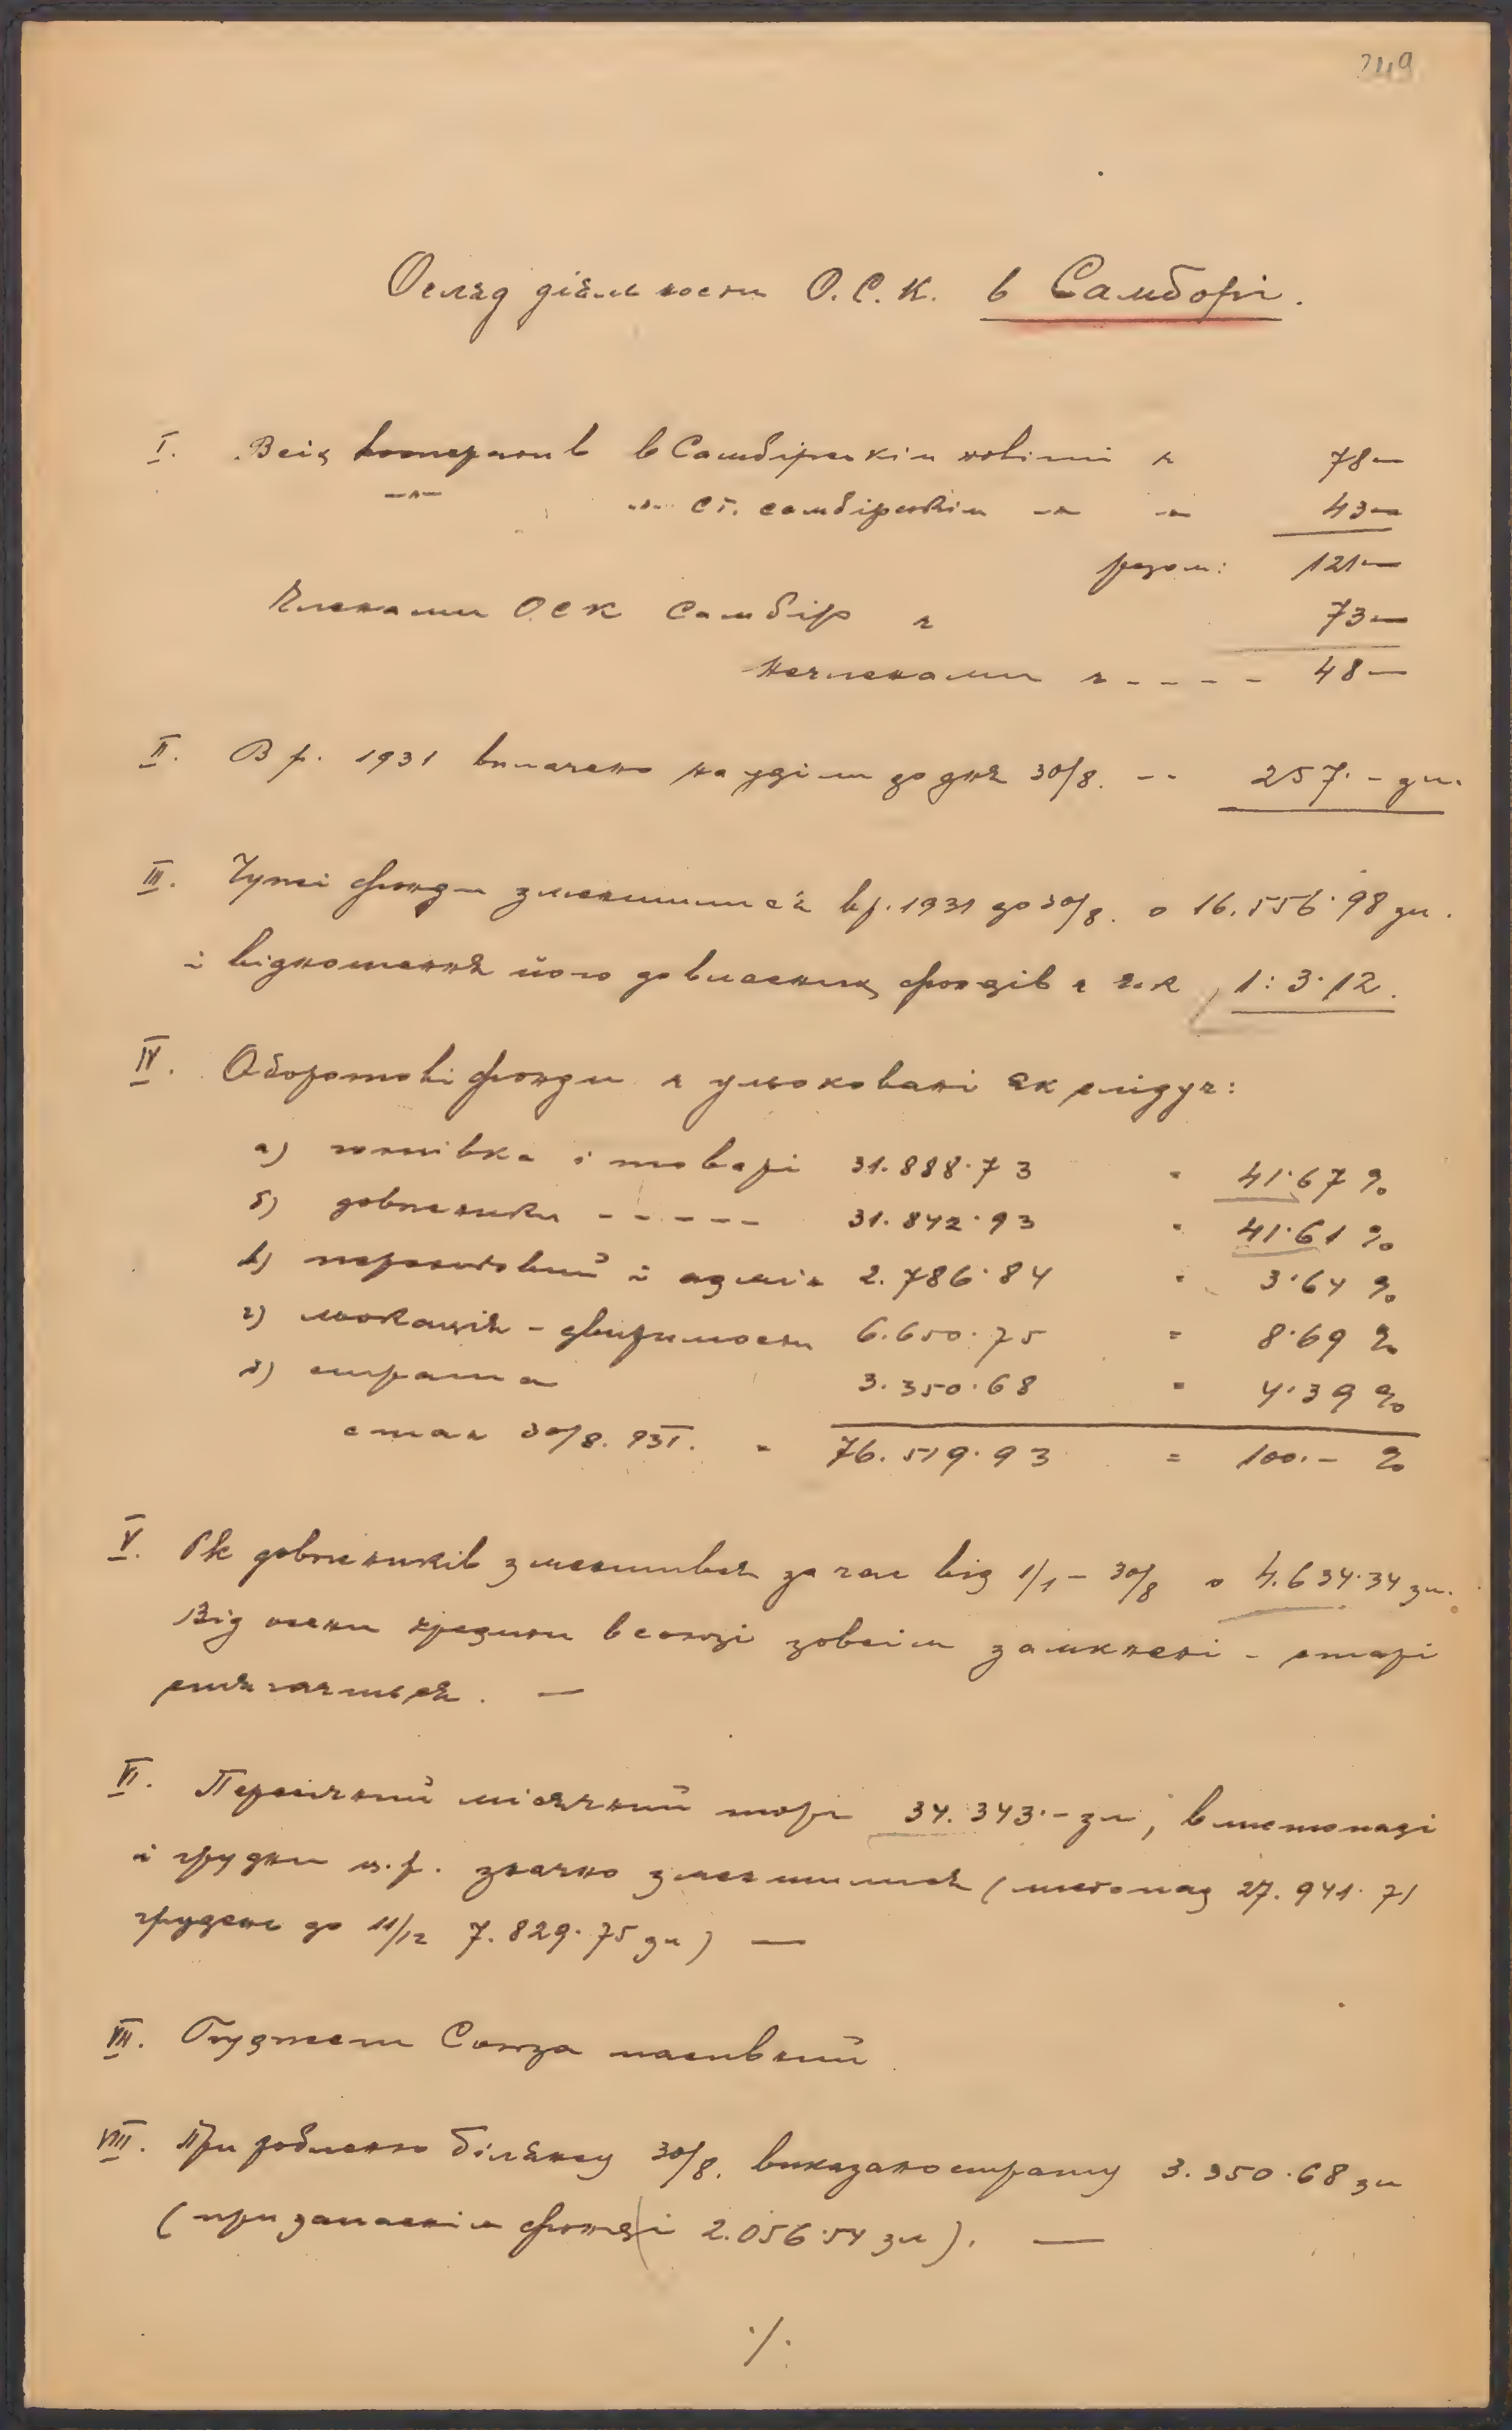 249
Огляд діяльности О.С.К. в Самборі.
I. Всіх кооператив в Самбірскім повіті є 78—
—"— —"— Ст. самбірскім —"— —"— 43—
разом: 121—
Членами ОСК Самбір є 73—
Нечленами є - - - - 48—
II. В р. 1931 вплачено на уділи до дня 30/8. -- 257.- зл.
III. Чужі фонди зменшилися в р. 1931 до 30/8. о 16.556.98 зл.
і відношення його до власних фондів є як 1:3.12.
IV. Оборотові фонди є ульоковані як слідує:
а) готівка і товарі 31.888.73 = 41.67 %
б) довжники - - - - - 31.842.93 = 41.61 %
в) переходовий і адмін 2.786.84 = 3.64 %
г) льокація - движимости 6.650.75 = 8.69 %
д) страта 3.350.68 = 4.39 %
стан 30/8. 931. = 76.519.93 = 100.- %
V. Рк довжників зменшився за час від 1/1 - 30/8 о 4.634.34 зл.
Від осени кредити в союзі зовсім замкнені - старі
стягаються. —
VI. Пересічний місячний торг 34.343.- зл, в листопаді
і грудни ц.р. значно зменшився (листопад 27.941.71
грудень до 11/12 7.829.75 зл) —
VII. Буджет Союза пасивний
VIII. При робленю білянсу 30/8. виказано страту 3.350.68 зл
(при запаснім фонді 2.056.54 зл). —
./.